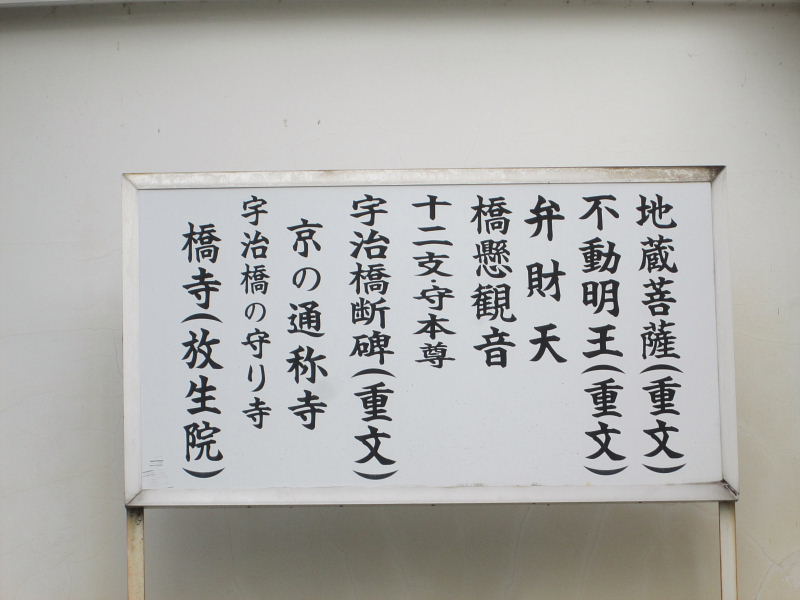 地蔵菩薩(重文)
不動明王(重文)
弁財天
橋懸観音
十二支・守本尊
宇治橋断碑(重文)
京の通称寺
宇治橋の守り寺
橋寺(放生院)